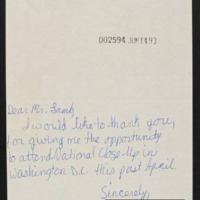 002594 JUN 14 93
Dear Mr.
I would like to thank you,
for giving me the opportunity
to attend National Close-Up in
Washington D.C. this past April.
Sincerely,